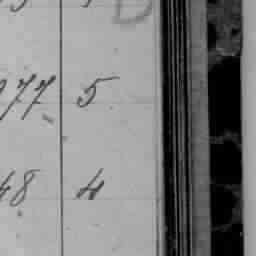 77 5
48 4